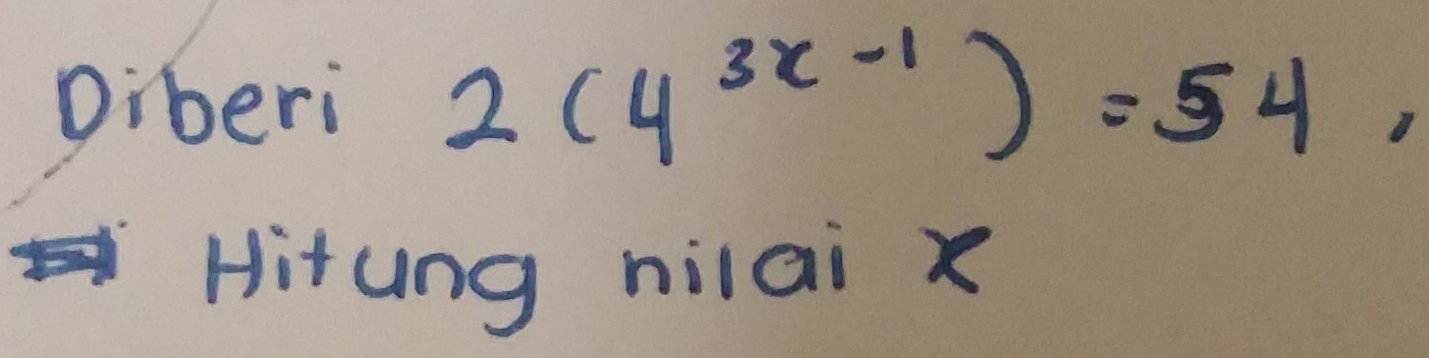 Diberi 2(4^{3x-1}) = 54,
Hitung nilai x